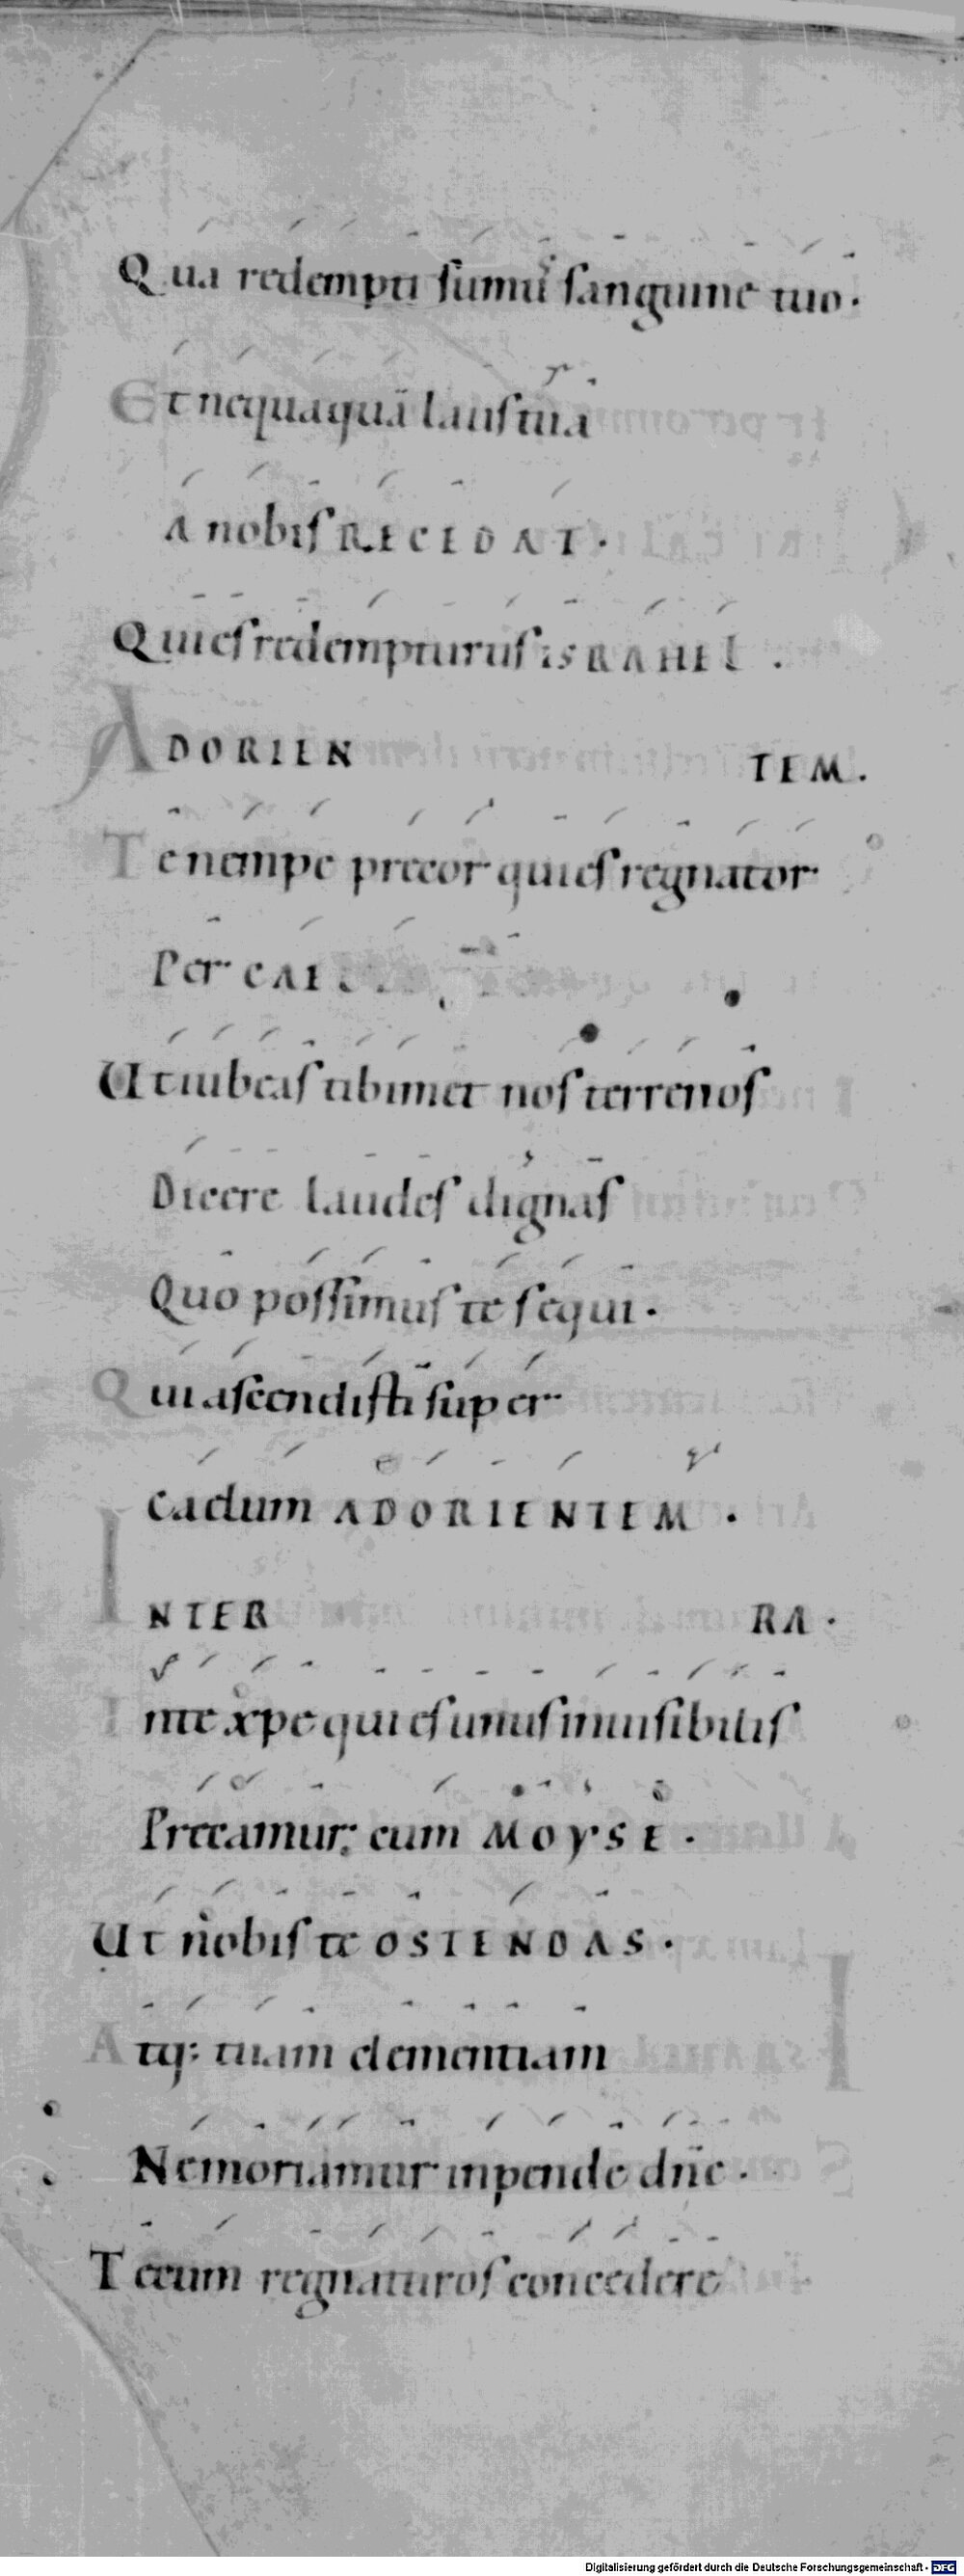 Qua redempti sumus sanguine tuo.
Et nequaquā laus tua
A nobis RECEDAT.
Qui es redempturus ISRAHEL.
ADORIEN TEM.
Te nempe precor qui es regnator
Per
Ut iubeas tibimet nos terrenos
Dicere laudes dignas
Quo possimus te sequi.
Qui ascendisti super
caelum ADORIENTEM.
INTER RA.
Inte xpe qui es unus inuisibilis
Precamur; cum MOYSE.
Ut nobis te OSTENDAS.
Atq: tuam clementiam
Ne moriamur inpende dn̄e.
Tecum regnaturos concedere
Digitalisierung gefördert durch die Deutsche Forschungsgemeinschaft - DFG